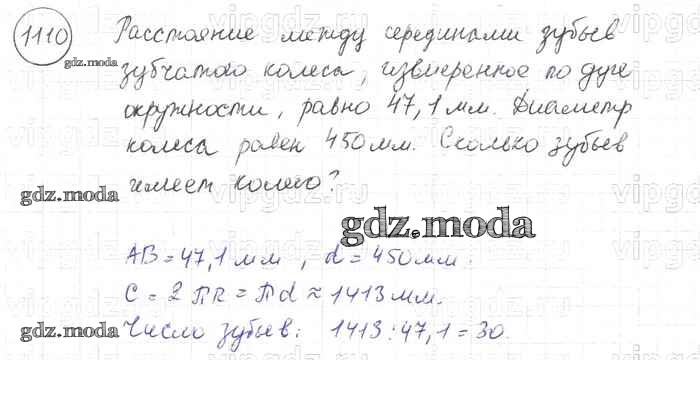 1110 Расстояние между серединами зубьев
gdz.moda
зубчатого колеса, измеренное по дуге
окружности, равно 47,1 мм. Диаметр
колеса равен 450 мм. Сколько зубьев
имеет колесо?
gdz.moda
gdz.moda
AB = 47,1 мм, d = 450 мм.
C = 2πR = πd ≈ 1413 мм.
gdz.moda
Число зубьев: 1413 : 47,1 = 30.